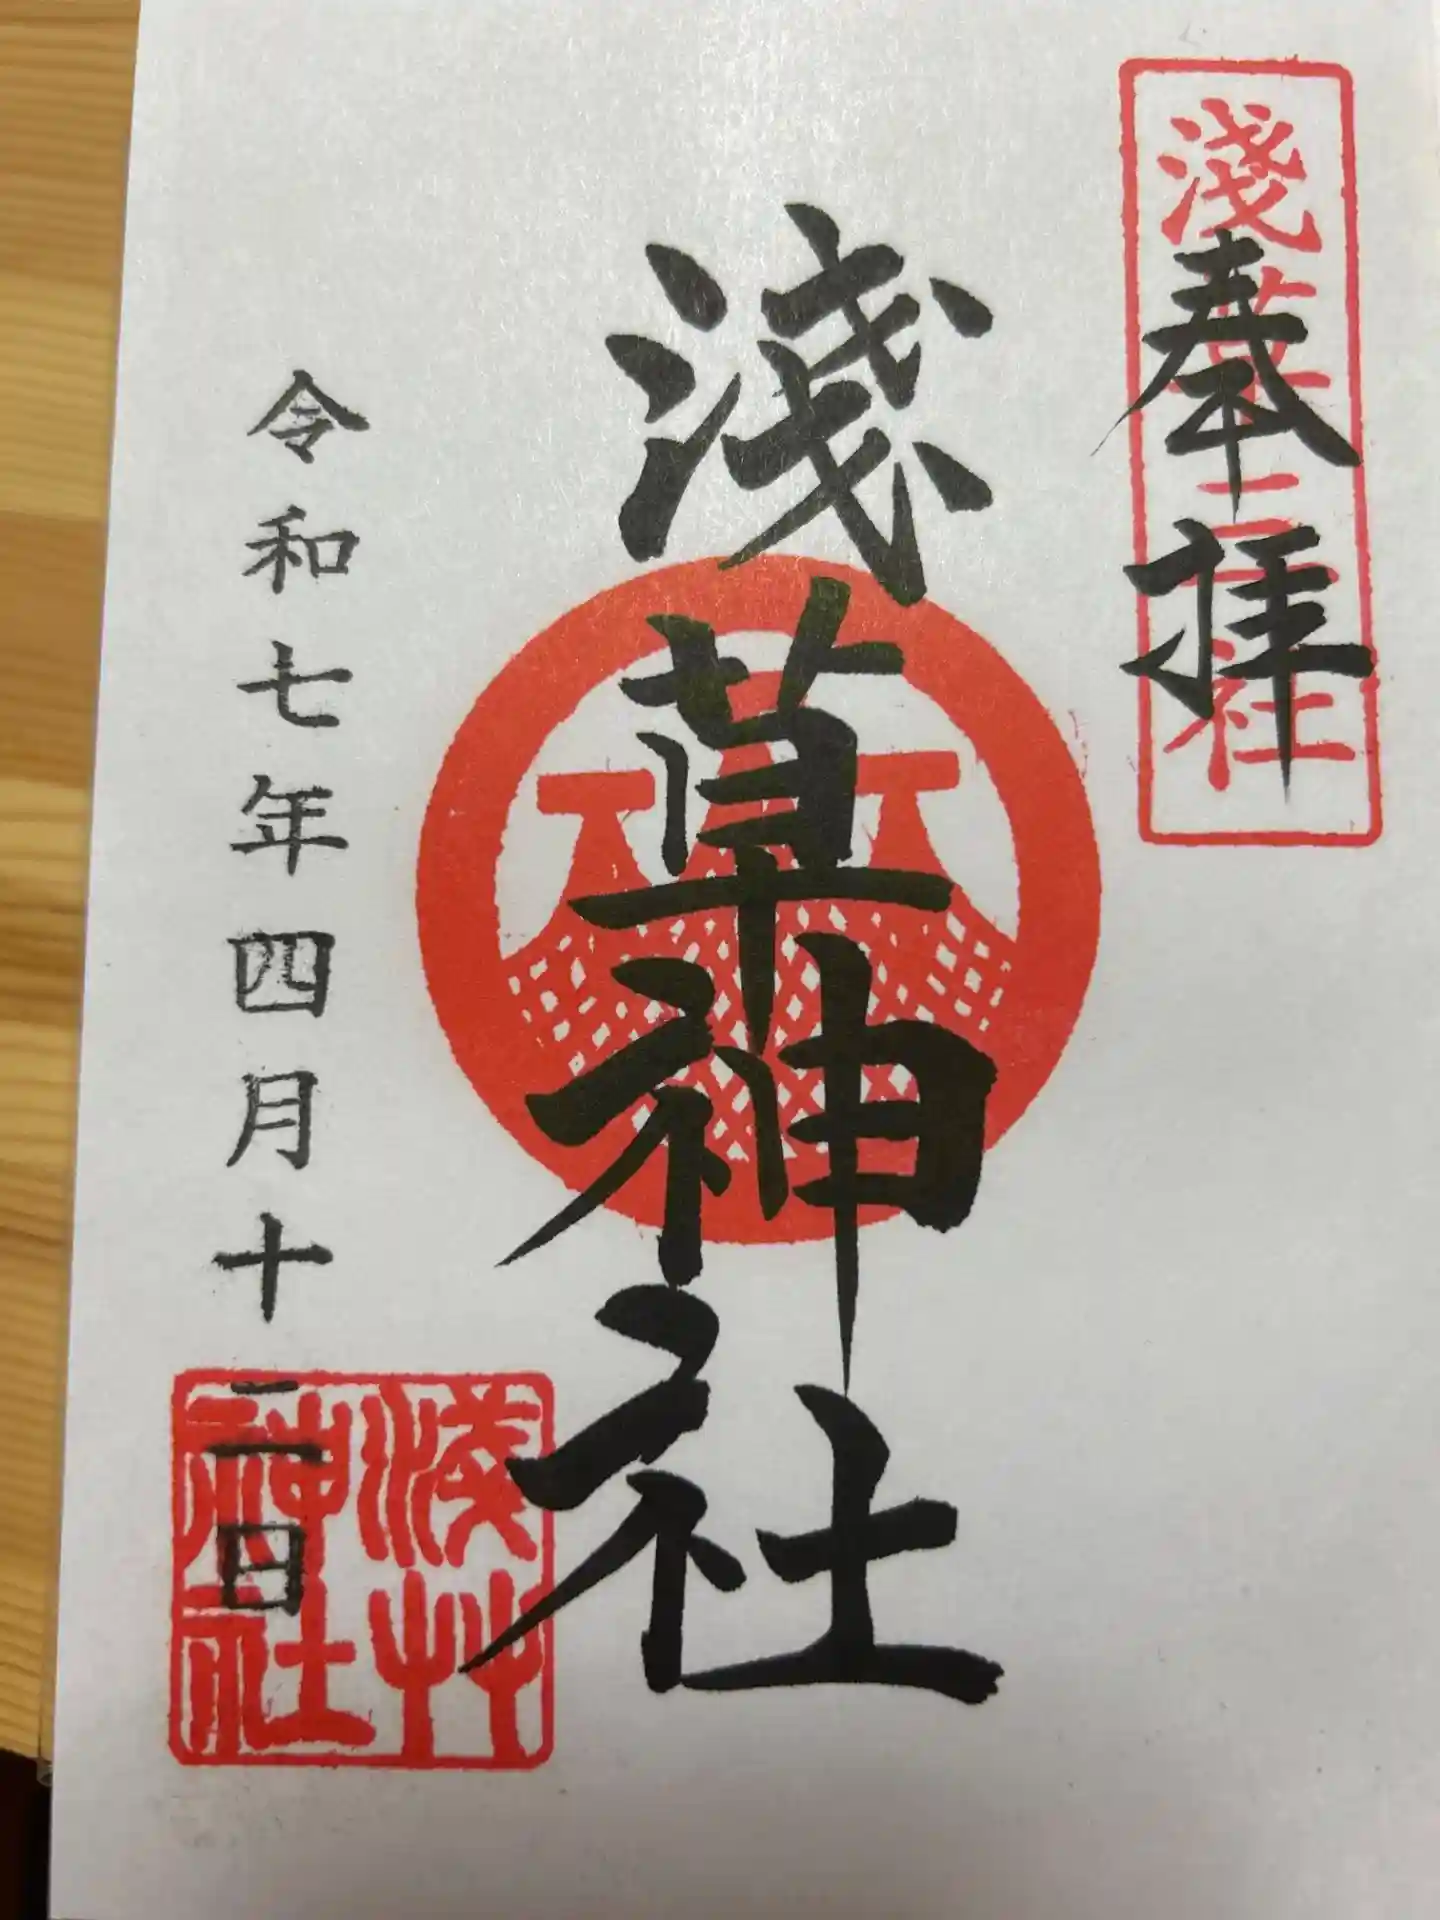 奉拝
淺草三社
浅草神社
淺草神社
令和七年四月十二日